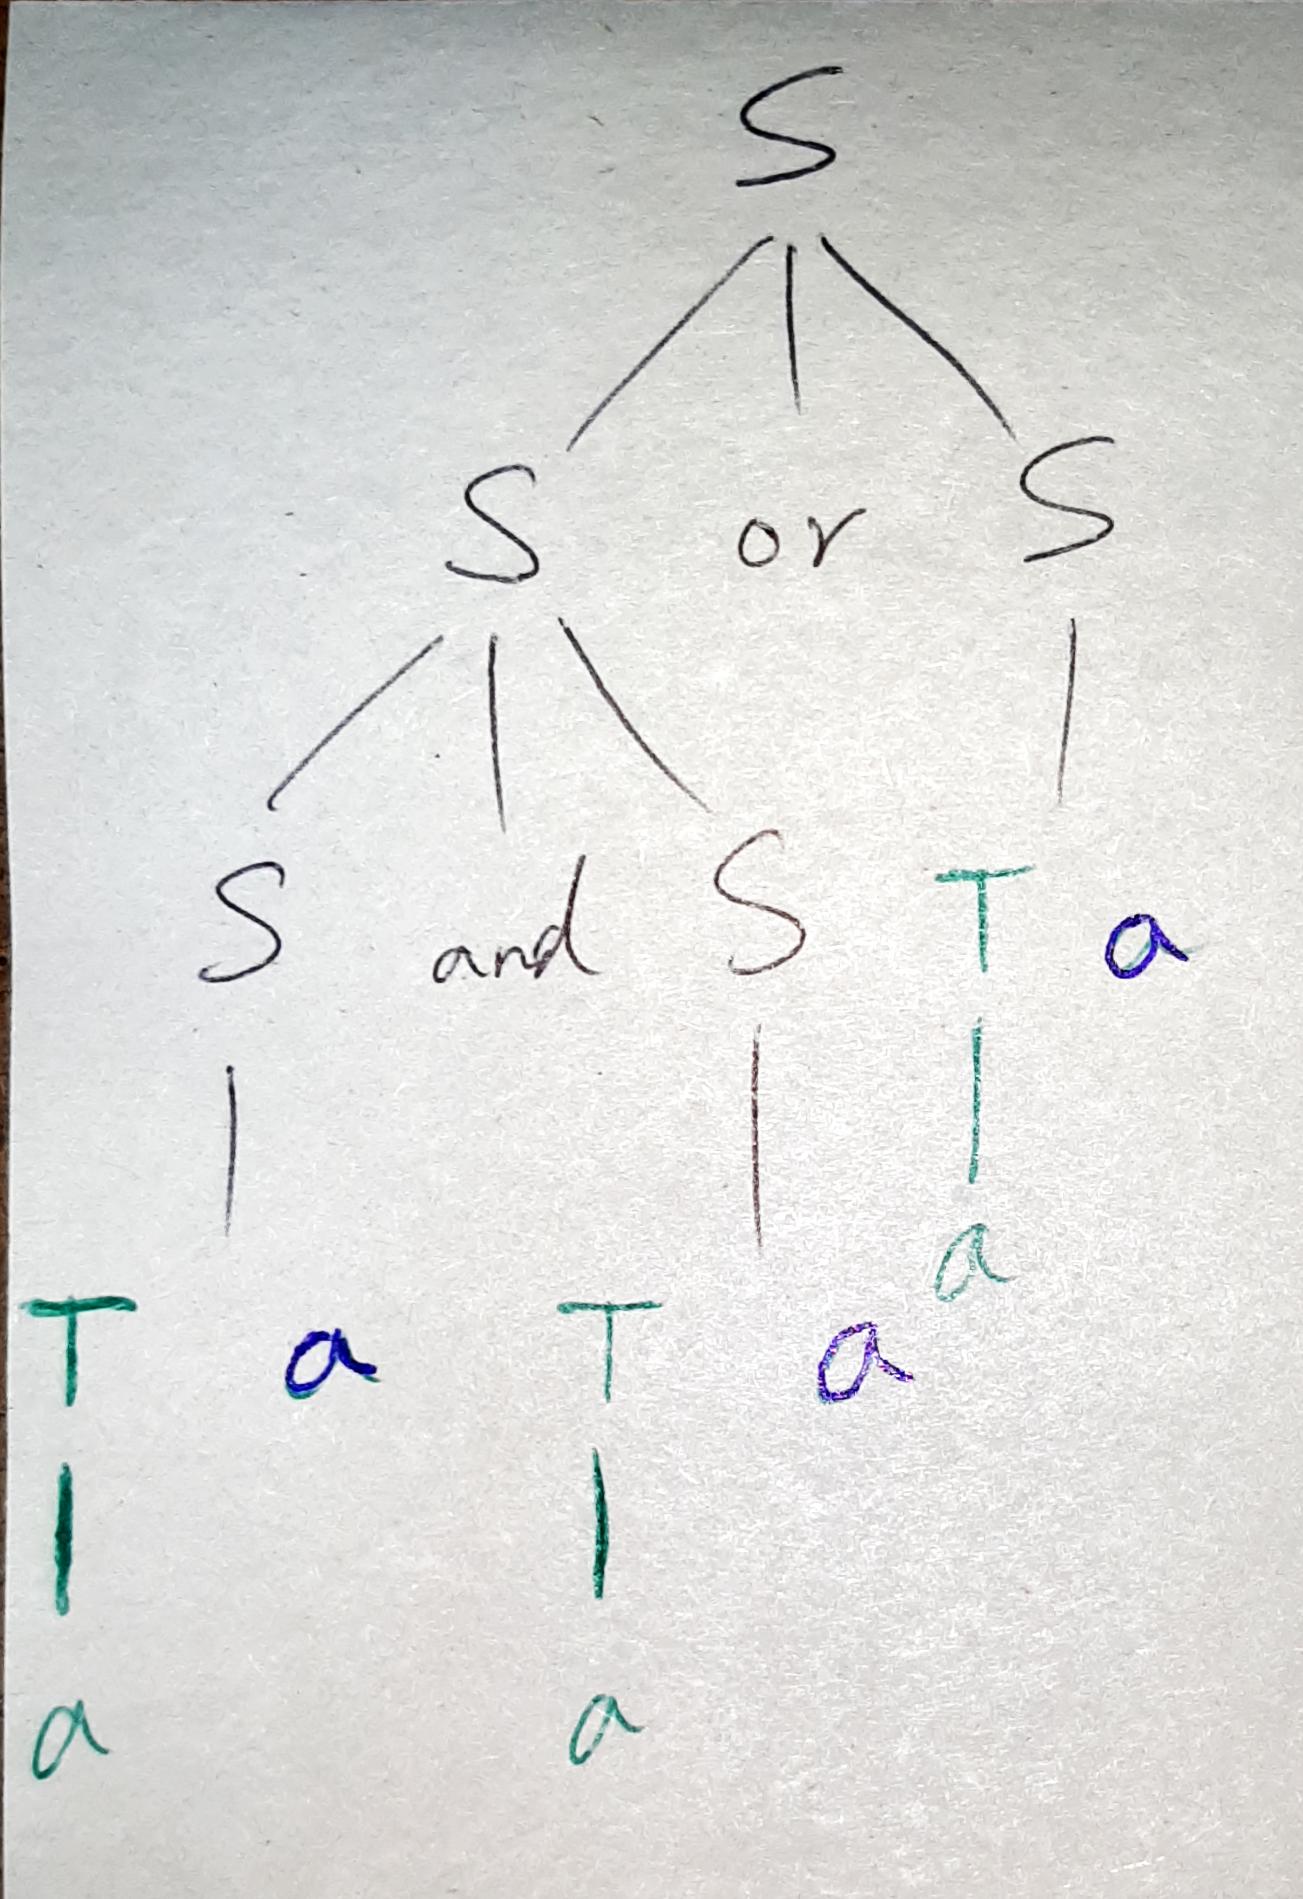 S
S or S
S and S T a
a
T a T a
a a